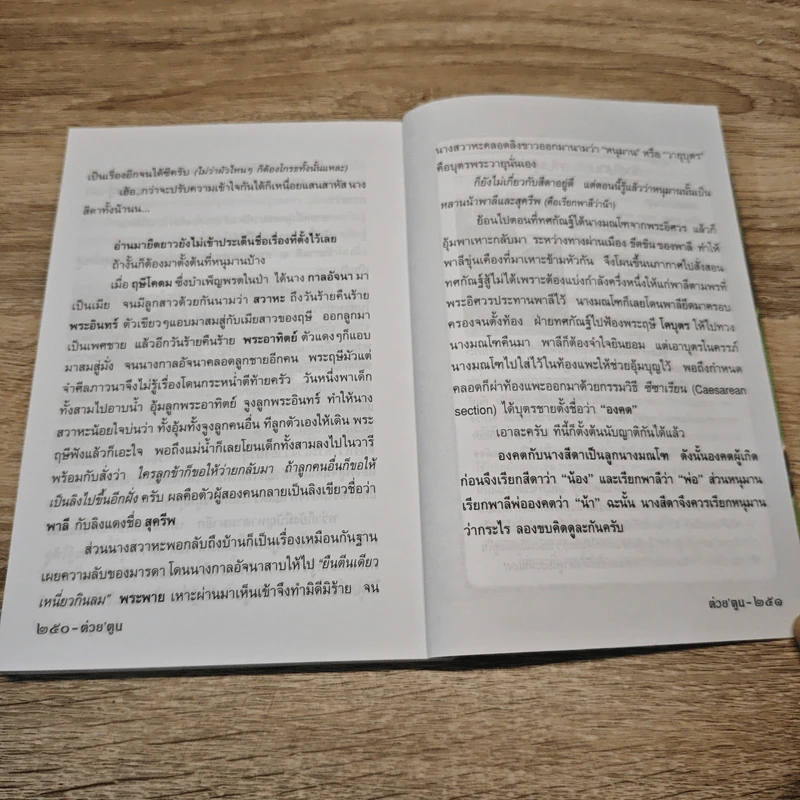 เป็นเรื่องอีกจนได้ซีครับ (ไม่ว่าผัวไหนๆ ก็ต้องโกรธทั้งนั้นแหละ)
เฮ้อ..กว่าจะปรับความเข้าใจกันได้ก็เหนื่อยแสนสาหัส นาง
สีดาทั้งน้านน...
อ่านมายืดยาวยังไม่เข้าประเด็นชื่อเรื่องที่ตั้งไว้เลย
ถ้างั้นก็ต้องมาตั้งต้นที่หนุมานบ้าง
เมื่อ ฤษีโคดม ซึ่งบำเพ็ญพรตในป่า ได้นาง กาลอัจนา มา
เป็นเมีย จนมีลูกสาวด้วยกันนามว่า สวาหะ ถึงวันร้ายคืนร้าย
พระอินทร์ ตัวเขียวๆแอบมาสมสู่กับเมียสาวของฤษี ออกลูกมา
เป็นเพศชาย แล้วอีกวันร้ายคืนร้าย พระอาทิตย์ ตัวแดงๆก็แอบ
มาสมสู่มั่ง จนนางกาลอัจนาคลอดลูกชายอีกคน พระฤษีมัวแต่
จำศีลภาวนาจึงไม่รู้เรื่องโดนกระหน่ำตีท้ายครัว วันหนึ่งพาเด็ก
ทั้งสามไปอาบน้ำ อุ้มลูกพระอาทิตย์ จูงลูกพระอินทร์ ทำให้นาง
สวาหะน้อยใจบ่นว่า ทั้งอุ้มทั้งจูงลูกคนอื่น ทีลูกตัวเองให้เดิน พระ
ฤษีฟังแล้วก็เอะใจ พอถึงแม่น้ำก็เลยโยนเด็กทั้งสามลงไปในวารี
พร้อมกับสั่งว่า ใครลูกข้าก็ขอให้ว่ายกลับมา ถ้าลูกคนอื่นก็ขอให้
เป็นลิงไปขึ้นอีกฝั่ง ครับ ผลคือตัวผู้สองคนกลายเป็นลิงเขียวชื่อว่า
พาลี กับลิงแดงชื่อ สุครีพ
ส่วนนางสวาหะพอกลับถึงบ้านก็เป็นเรื่องเหมือนกันฐาน
เผยความลับของมารดา โดนนางกาลอัจนาสาบให้ไป "ยืนตีนเดียว
เหนี่ยวกินลม" พระพาย เหาะผ่านมาเห็นเข้าจึงทำมิดีมิร้าย จน
๒๕๐ - ต่วย'ตูน
นางสวาหะคลอดลิงขาวออกมานามว่า "หนุมาน" หรือ "วายุบุตร"
คือบุตรพระวายุนั่นเอง
ก็ยังไม่เกี่ยวกับสีดาอยู่ดี แต่ตอนนี้รู้แล้วว่าหนุมานนั้นเป็น
หลานน้าพาลีและสุครีพ (คือเรียกพาลีว่าน้า)
ย้อนไปตอนที่ทศกัณฐ์ได้นางมณโฑจากพระอิศวร แล้วก็
อุ้มพาเหาะกลับมา ระหว่างทางผ่านเมือง ขีดขิน ของพาลี ทำให้
พาลีขุ่นเคืองที่มาเหาะข้ามหัวกัน จึงโผนขึ้นนภากาศไปสั่งสอน
ทศกัณฐ์สู้ไม่ได้เพราะต้องแบ่งกำลังครึ่งหนึ่งให้แก่พาลีตามพรที่
พระอิศวรประทานพาลีไว้ นางมณโฑก็เลยโดนพาลียึดมาครอบ
ครองจนตั้งท้อง ฝ่ายทศกัณฐ์ไปฟ้องพระฤษี โคบุตร ให้ไปทวง
นางมณโฑคืนมา พาลีก็ต้องจำใจยินยอม แต่เอาบุตรในครรภ์
นางมณโฑไปใส่ไว้ในท้องแพะให้ช่วยอุ้มบุญไว้ พอถึงกำหนด
คลอดก็ผ่าท้องแพะออกมาด้วยกรรมวิธี ซีซาเรียน (Caesarean
section) ได้บุตรชายตั้งชื่อว่า "องคต"
เอาละครับ ทีนี้ก็ตั้งต้นนับญาติกันได้แล้ว
องคตกับนางสีดาเป็นลูกนางมณโฑ ดังนั้นองคตผู้เกิด
ก่อนจึงเรียกสีดาว่า "น้อง" และเรียกพาลีว่า "พ่อ" ส่วนหนุมาน
เรียกพาลีพ่อองคตว่า "น้า" ฉะนั้น นางสีดาจึงควรเรียกหนุมาน
ว่ากระไร ลองขบคิดดูละกันครับ
ต่วย'ตูน - ๒๕๑